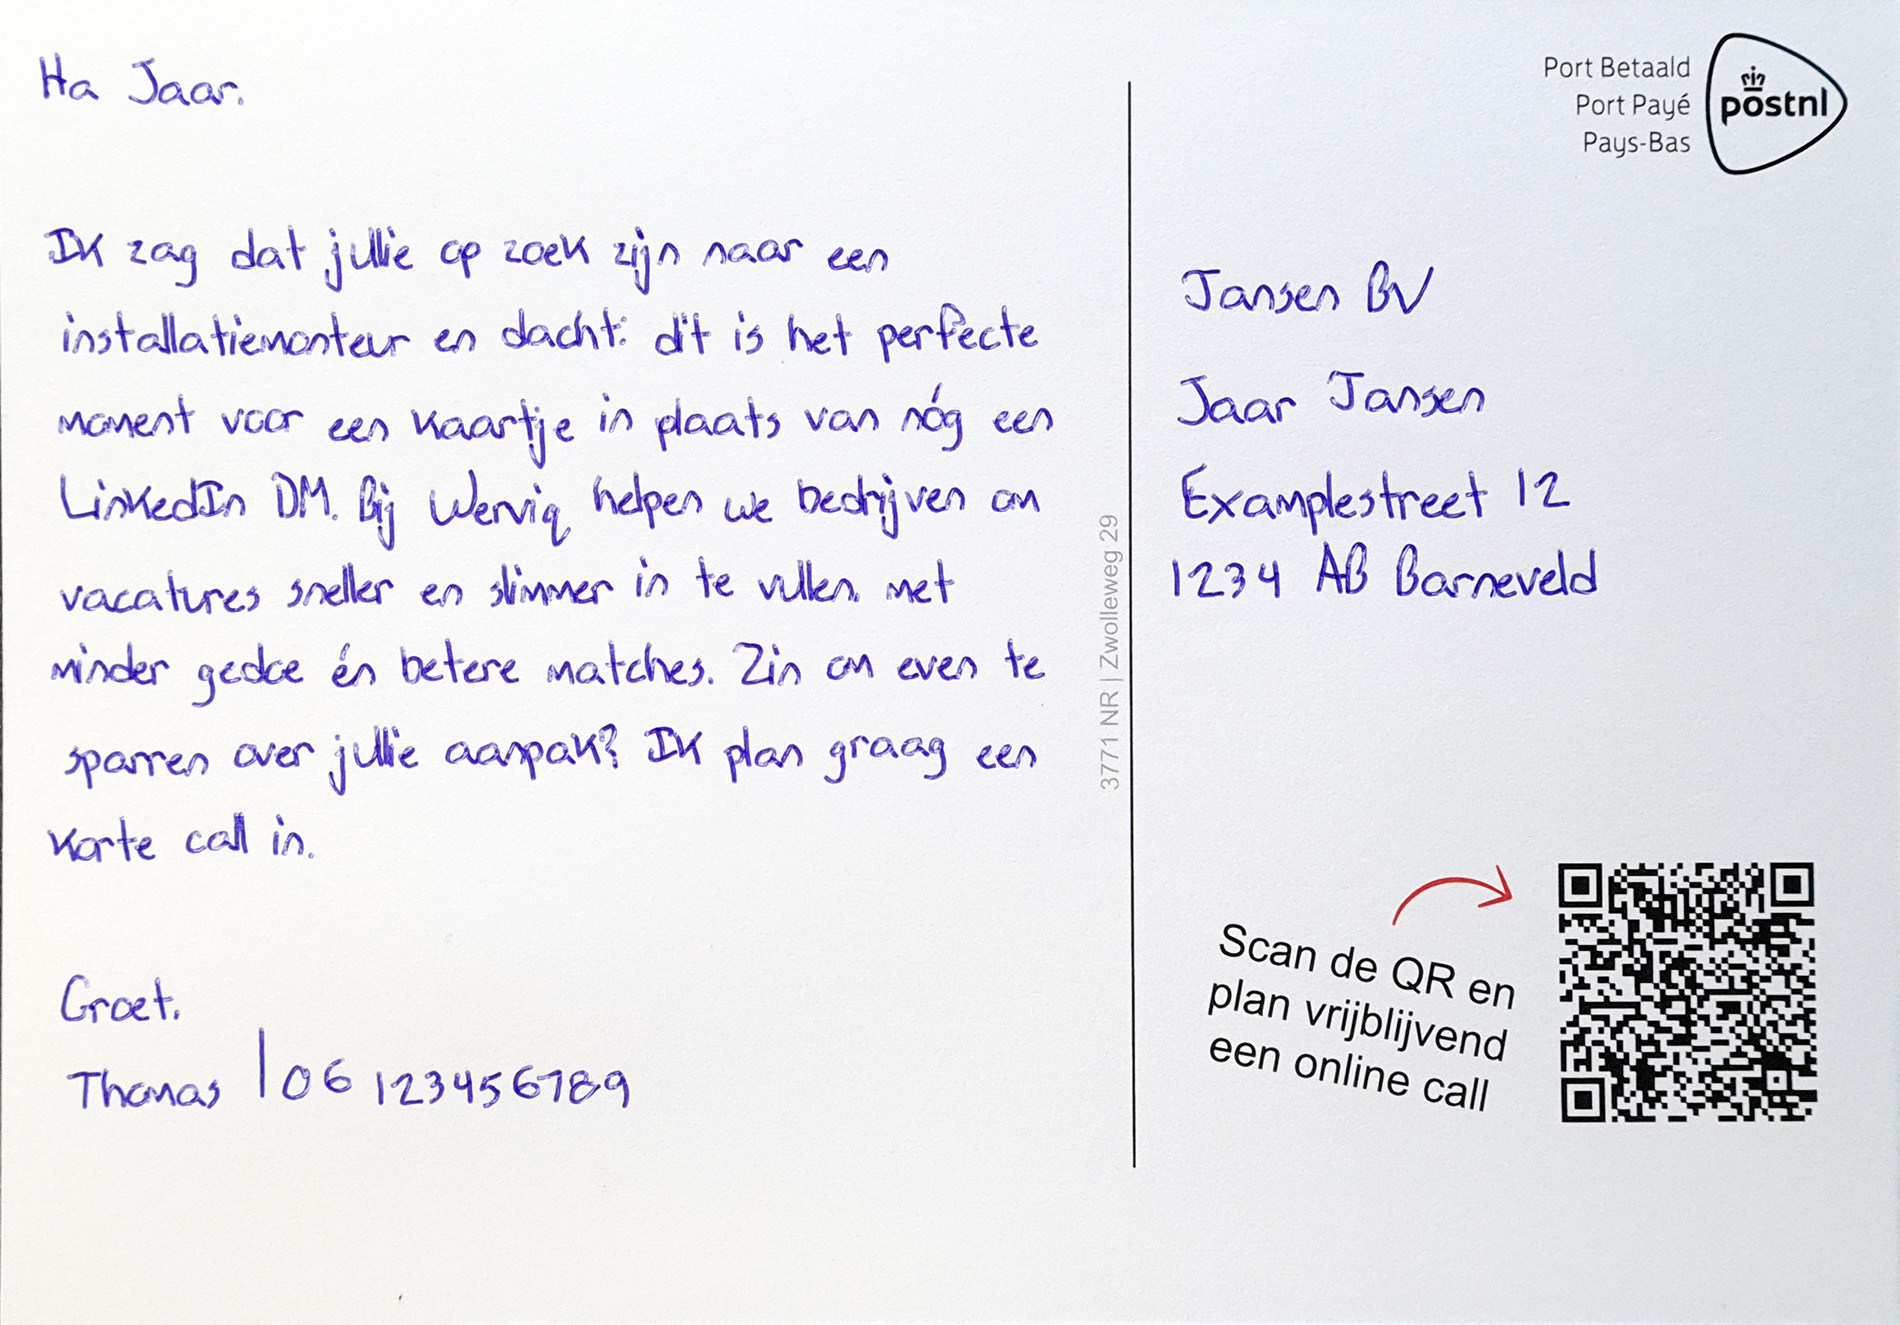 Ha Jaar,
Ik zag dat jullie op zoek zijn naar een
installatiemonteur en dacht: dit is het perfecte
moment voor een kaartje in plaats van nóg een
LinkedIn DM. Bij Werviq helpen we bedrijven om
vacatures sneller en slimmer in te vullen, met
minder gedoe én betere matches. Zin om even te
sparren over jullie aanpak? Ik plan graag een
korte call in.
Groet,
Thomas | 06 123456789
3771 NR | Zwolleweg 29
Port Betaald
Port Payé
Pays-Bas
postnl
Jansen BV
Jaar Jansen
Examplestreet 12
1234 AB Barneveld
Scan de QR en
plan vrijblijvend
een online call